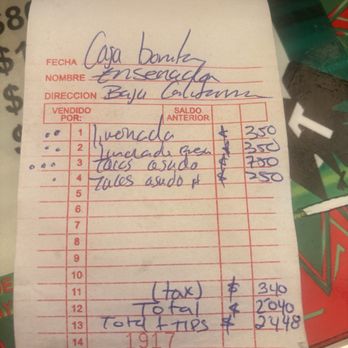 FECHA Caja bonita
NOMBRE Ensenada
DIRECCION Baja California
VENDIDO POR: SALDO ANTERIOR
1 limonada $ 350
2 $ 350
3 Tacos asado $ 750
4 Tacos asado $ 250
5
6
7
8
9
10
11 (tax) $ 340
12 Total $ 2040
13 Total + TIPS $ 2448
14 1917